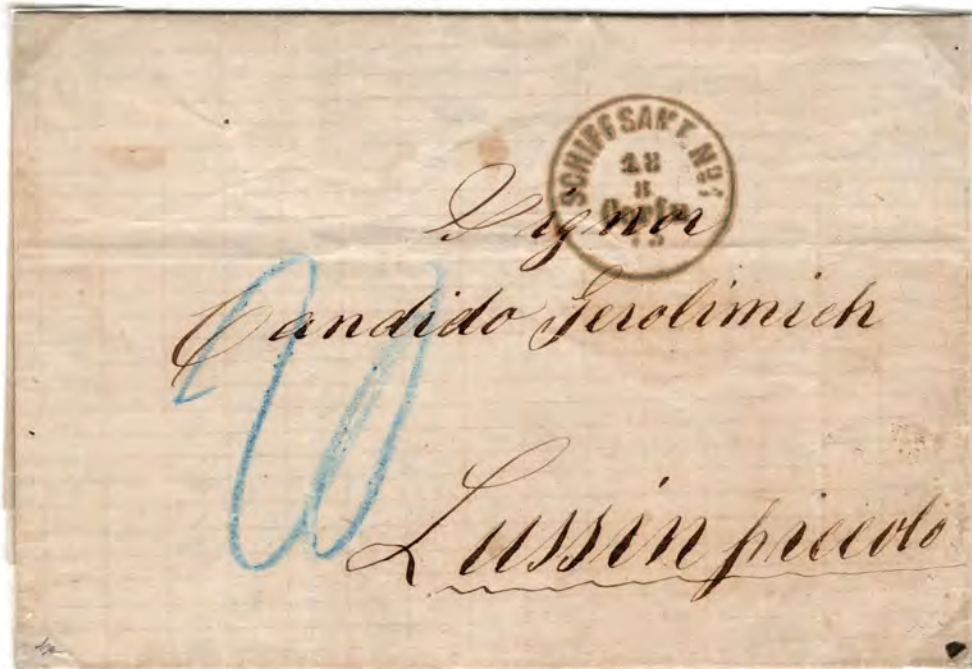 SCHIFFSAMT. Nº1
8
Corfu
Signor
Candido Gerolimich
Lussin piccolo